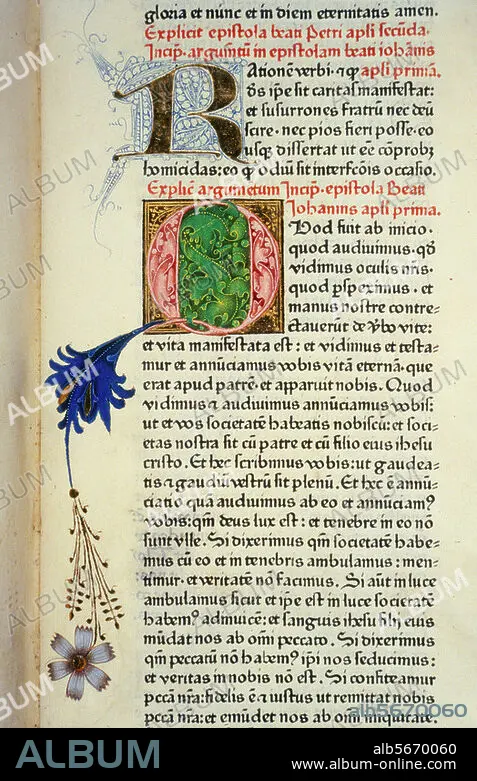 gloria et nunc et in diem eternitatis amen.
Explicit epistola beati Petri apli secūda.
Incip̄. argumētū in epistolam beati iohānis
Rationem verbi. apli primā.
ōs ip̄e sit caritas manifestat:
et susurrones fratrū nec deū
scire. nec pios fieri posse. eo
usq̄ dissertat ut eē cōprobȝ
homicidas: eo q̄ odiū sit interfcōis occasio.
Explic̄ argumētum Incip̄. epistola Beati
Iohannis apli prima.
Quod fuit ab inicio.
quod audiuimus. qō
vidimus oculis nr̄is.
quod ꝑspeximus. et
manus nostre contre-
ctauerūt de v̄bo vite:
et vita manifestata est: et vidimus et testa-
mur et annūciamus vobis vitā eternā. que
erat apud patrē. et apparuit nobis. Quod
vidimus et audiuimus annūciamus vobis:
ut et vos societatē habeatis nobiscū: et soci-
etas nostra sit cū patre et cū filio eius ihesu
cristo. Et hec scribimus vobis: ut gaudea-
tis et gaudiū vestrū sit plenū. Et hec ē annū-
ciatio quā audiuimus ab eo et annūciamꝰ
vobis: qm̄ deus lux est: et tenebre in eo nō
sunt ulle. Si dixerimus qm̄ societatē habe-
mus cū eo et in tenebris ambulamus: men-
timur. et veritatē nō facimus. Si aūt in luce
ambulamus sicut et ip̄e est in luce societatē
habemꝰ adinuicē: et sanguis ihesu filij eius
mūdat nos ab om̄i peccato. Si dixerimus
qm̄ peccatū nō habemꝰ ip̄i nos seducimus:
et veritas in nobis nō est. Si confiteamur
pccā nr̄a: fidelis ē et iustus ut remittat nobis
pccā nr̄a: et emūdet nos ab om̄i iniquitate.
ALBUM
alb5670060
ALBUM
alb5670060
www.album-online.com